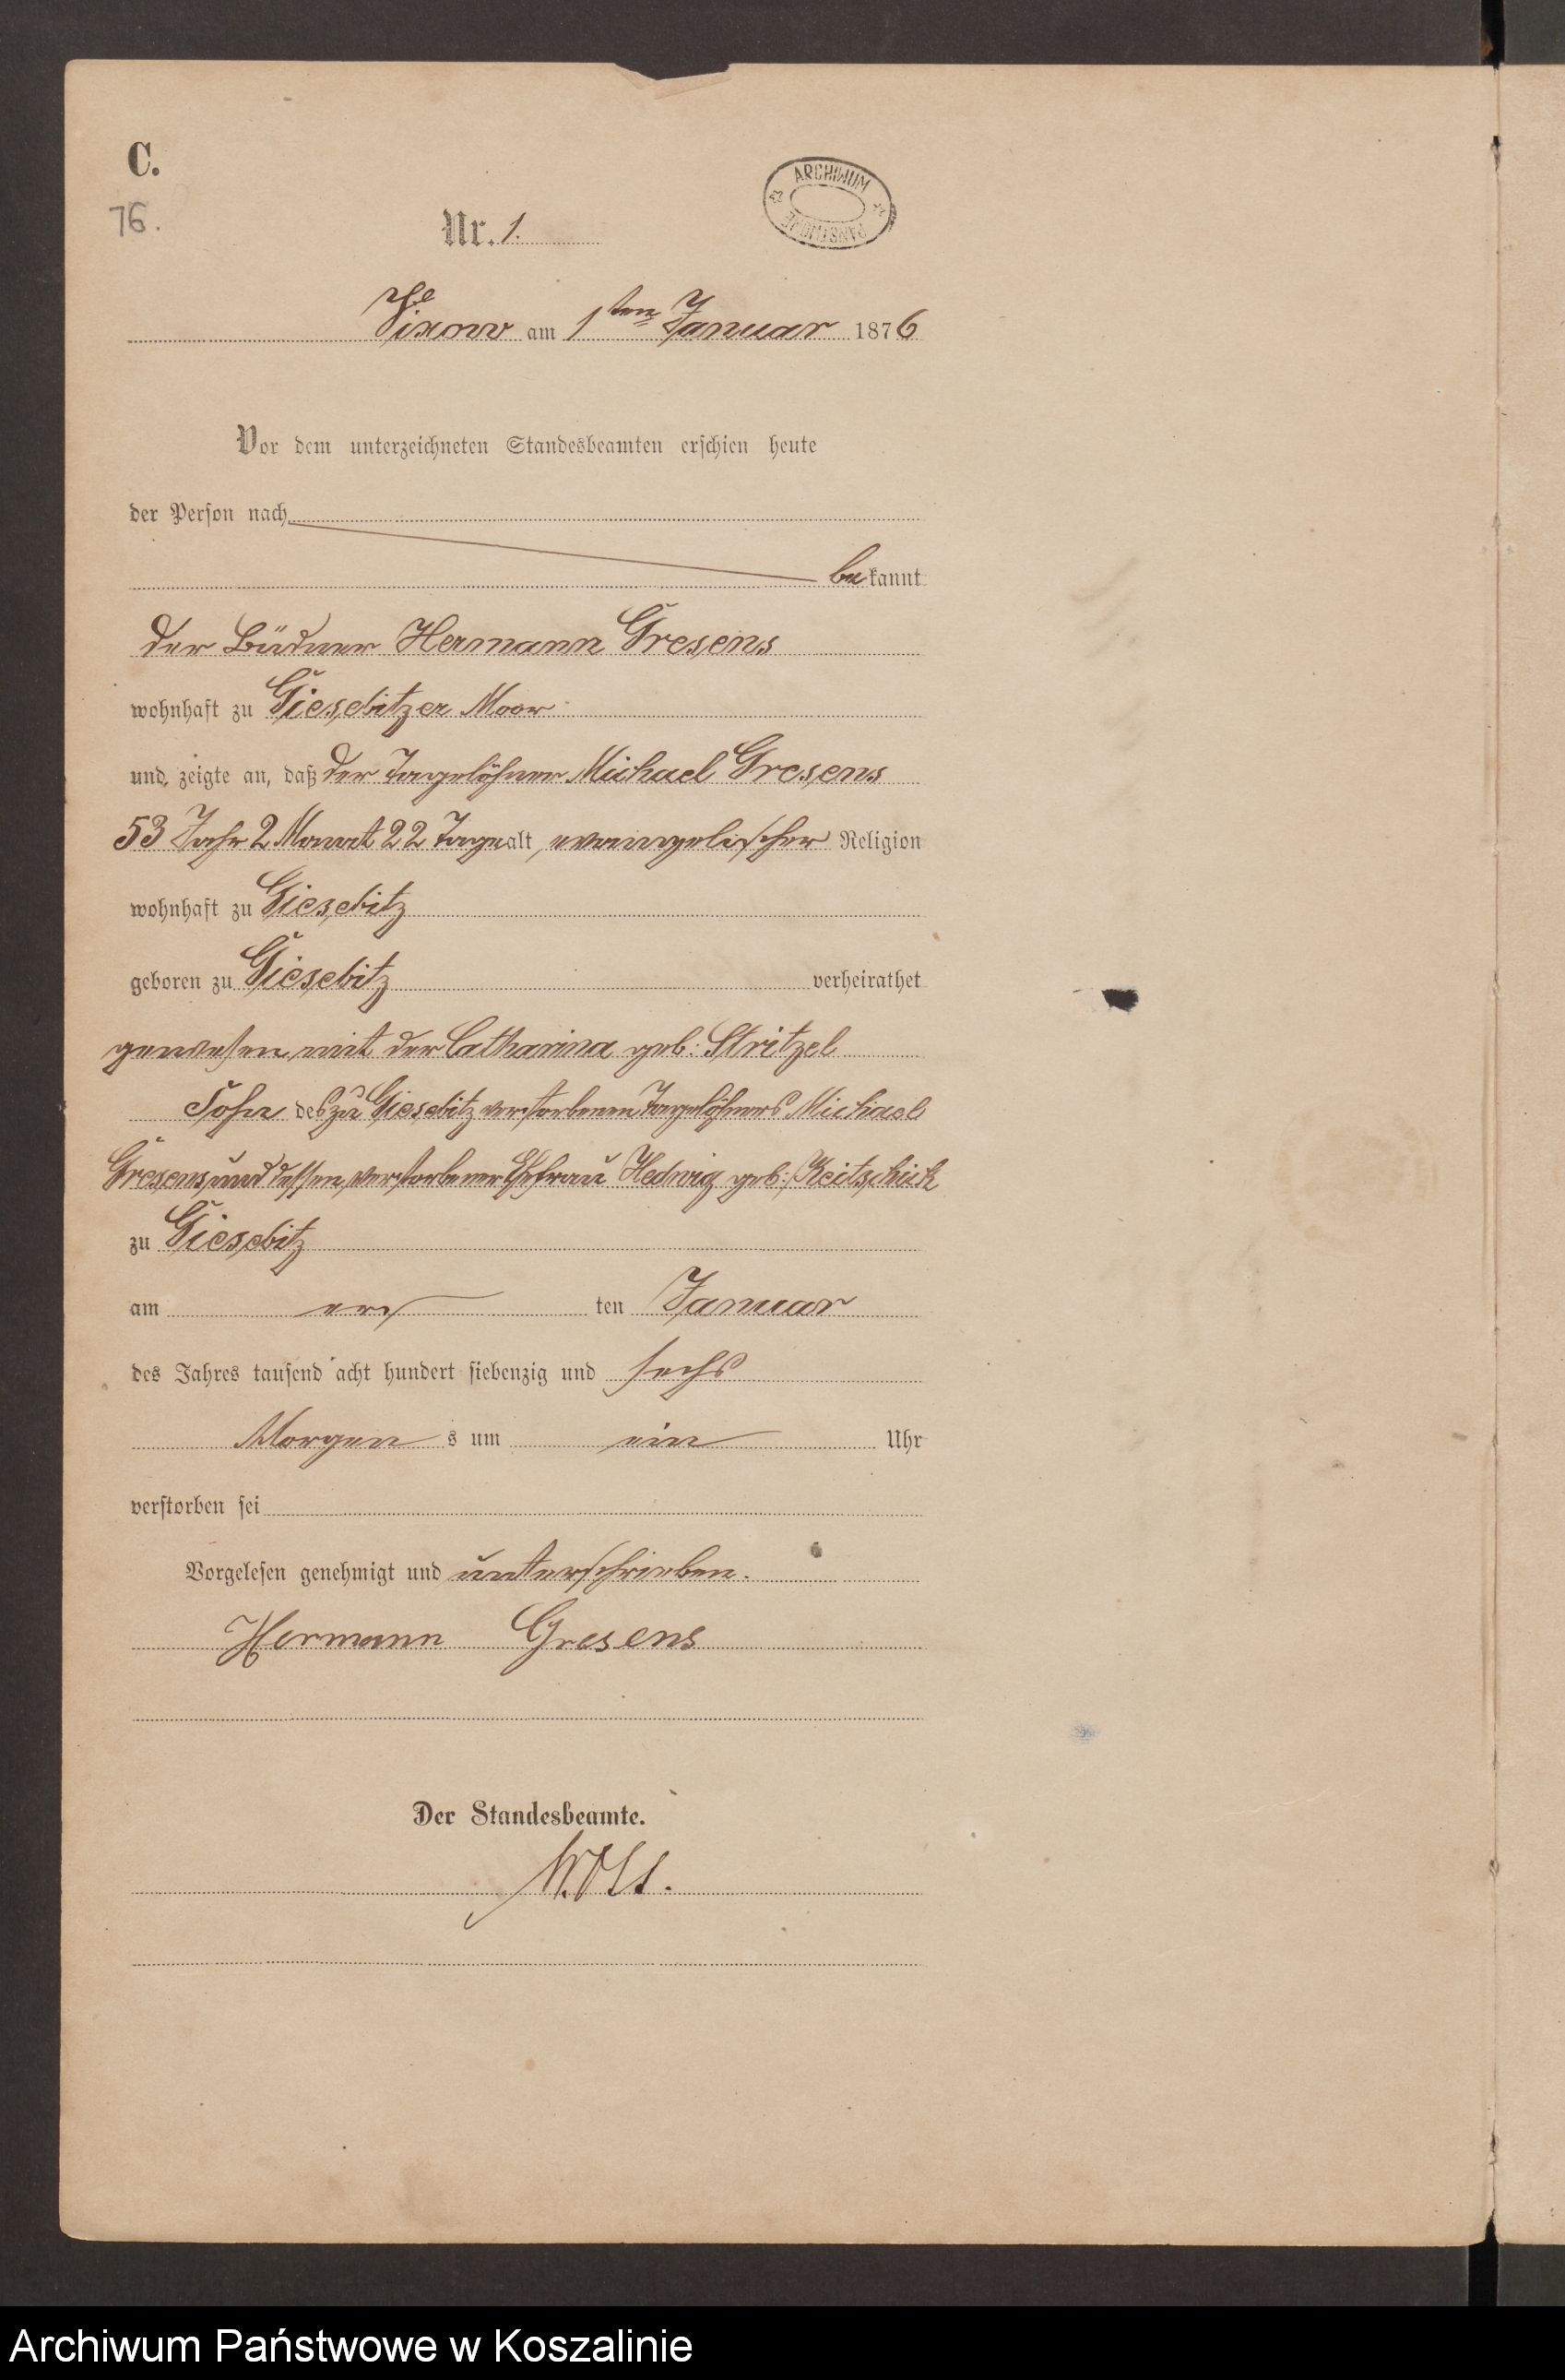 C.
76.
Nr. 1.
ARCHIWUM
PAŃSTWOWE
Vixow am 1ten Januar 1876
Vor dem unterzeichneten Standesbeamten erschien heute
der Person nach
bekannt
der Büdner Hermann Gresens
wohnhaft zu Giesebitzer Moor
und zeigte an, daß der Tagelöhner Michael Gresens
53 Jahr 2 Monat 22 Tage alt, evangelischer Religion
wohnhaft zu Giesebitz
geboren zu Giesebitz verheirathet
gewesen mit der Catharina geb: Stritzel
Sohn des zu Giesebitz verstorbenen Tagelöhners Michael
Gresens und dessen verstorbener Ehefrau Hedwig geb:
zu Giesebitz
am ers ten Januar
des Jahres tausend acht hundert siebenzig und sechs
Morgen s um ein Uhr
verstorben sei
Vorgelesen genehmigt und unterschrieben.
Hermann Gresens
Der Standesbeamte.
Archiwum Państwowe w Koszalinie